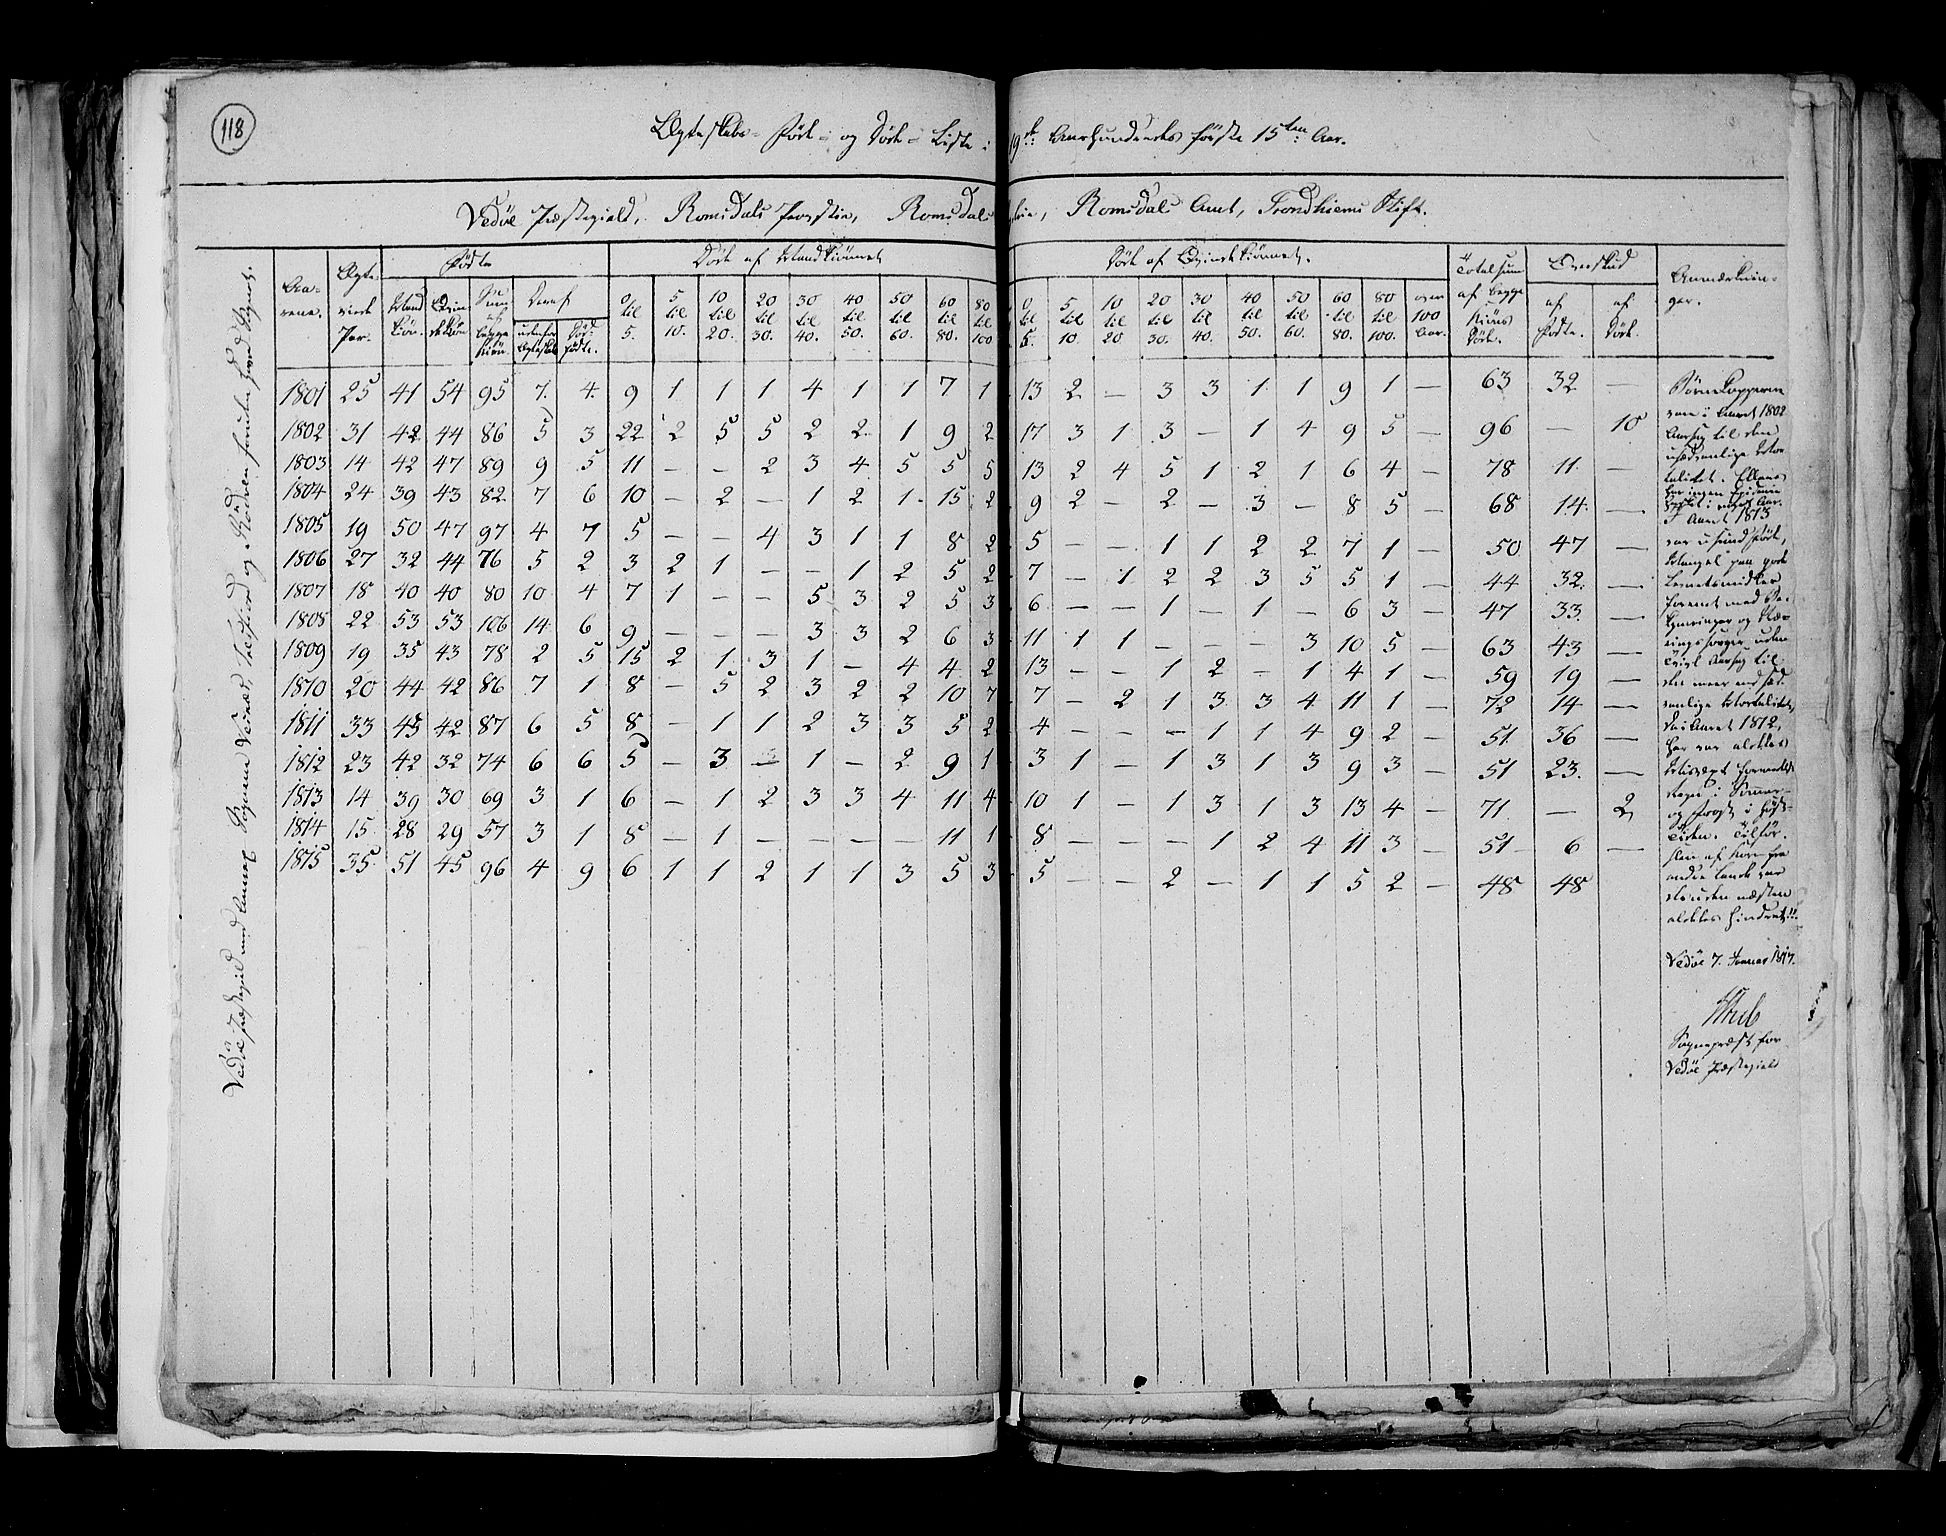 118
Ægteskabs- Fødte- og Døde- Liste i 19de Aarhundredes første 15ten Aar.
Vedöe Præstegield, Romsdals Provstie, Romsdals Fogderie, Romsdals Amt, Trondhiems Stift.
Aarene. Ægteviede Par. Fødte Døde af Mandkiønnet Døde af Qvindekiønnet. Totalsum af begge Kiøns Døde. Overskud Anmærkninger.
Mandkiøn. Qvindekiøn Summa af begge Kiøn. Deraf 0 til 5. 5 til 10. 10 til 20. 20 til 30. 30 til 40. 40 til 50. 50 til 60. 60 til 80. 80 til 100 0 til 5. 5 til 10 10 til 20 20 til 30. 30 til 40. 40 til 50. 50 til 60. 60 til 80. 80 til 100. over 100 Aar. af Fødte. af Døde.
udenfor Ægteskab Dødfødte.
1801 25 41 54 95 7. 4. 9 1 1 1 4 1 1 7 1 13 2 — 3 3 1 1 9 1 — 63 32 —
1802 31 42 44 86 5 3 22 2 5 5 2 2 1 9 2 17 3 1 3 — 1 4 9 5 — 96 — 10
1803 14 42 47 89 9 5 11 — — 2 3 4 5 5 5 13 2 4 5 1 2 1 6 4 — 78 11 —
1804 24 39 43 82 7 6 10 — 2 — 1 2 1 15 2 9 2 — 2 — 3 — 8 5 — 68 14 —
1805 19 50 47 97 4 7 5 — — 4 3 1 1 8 2 5 — — 1 1 2 2 7 1 — 50 47 —
1806 27 32 44 76 5 2 3 2 1 — — 1 2 5 2 7 — 1 2 2 3 5 5 1 — 44 32 —
1807 18 40 40 80 10 4 7 1 — — 5 3 2 5 3 6 — — 1 — 1 — 6 3 — 47 33 —
1808 22 53 53 106 14 6 9 — — — 3 3 2 6 3 11 1 1 — — — 3 10 5 — 63 43 —
1809 19 35 43 78 2 5 15 2 1 3 1 — 4 4 2 13 — — 1 2 — 1 4 1 — 59 19 —
1810 20 44 42 86 7 1 8 — 5 2 3 2 2 10 7 7 — 2 1 3 3 4 11 1 — 72 14 —
1811 33 45 42 87 6 5 8 — 1 1 2 3 3 5 2 4 — — — 1 1 4 9 2 — 51 36 —
1812 23 42 32 74 6 6 5 — 3 — 1 — 2 9 1 3 1 — 1 3 1 3 9 3 — 51 23 —
1813 14 39 30 69 3 1 6 — 1 2 3 3 4 11 4 10 1 — 1 3 1 3 13 4 — 71 — 2
1814 15 28 29 57 3 1 8 — 1 — — — — 11 1 8 — — — 1 2 4 11 3 — 51 6 —
1815 35 51 45 96 4 9 6 1 1 2 1 1 3 5 3 5 — — 2 — 1 1 5 2 — 48 48
Børnekopperne
vare i Aaret 1802
Aarsag til den
usædvanlige Mor-
talitet. Ellers
har ingen Epidemie
I Aaret 1813
var usund Føde,
Mangel paa gode
Levnetsmidler
forenet med Be-
kymringer og Næ-
ringssorger uden
Tvivl Aarsag til
den meer end sæd-
vanlige Mortalitet,
da i Aaret 1812,
her var aldeles
Misvæxt formedelst
Regn i Sommer-
og Frost i Høst-
Tiden. Tilfør-
slen af Korn fra
andre Lande var
desuden næsten
aldeles hindret!!
Vedöe 7. Januar 1817.
Sognepræst for
Vedöe Præstegield